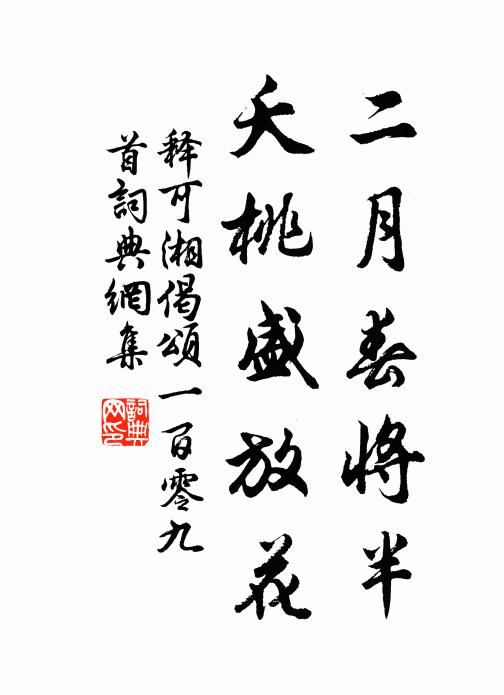 二月春將半
夭桃盛放花
释可湘偈頌一百零九
首詞典網集
詞典
网印